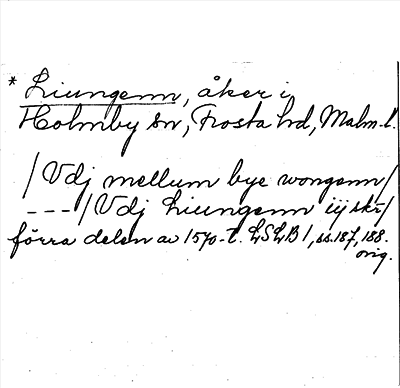 * Liungenn, åker i
Holmby sn, Frosta hd, Malm-l.
/ Vdj mellum bye wongenn /
--- / Vdj Liungenn iij skr /
förra delen av 1570-t. LSLB 1, ss. 187, 188.
orig.